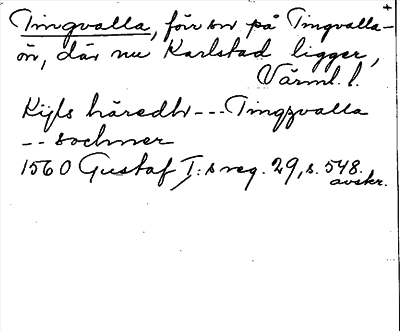 Tingvalla, förr sn på Tingvalla-
ön, där nu Karlstad ligger,
Värml. l.
Kijls häredh --- Tingzvalla
-- sochner
1560 Gustaf I:s reg. 29, s. 548.
avskr.